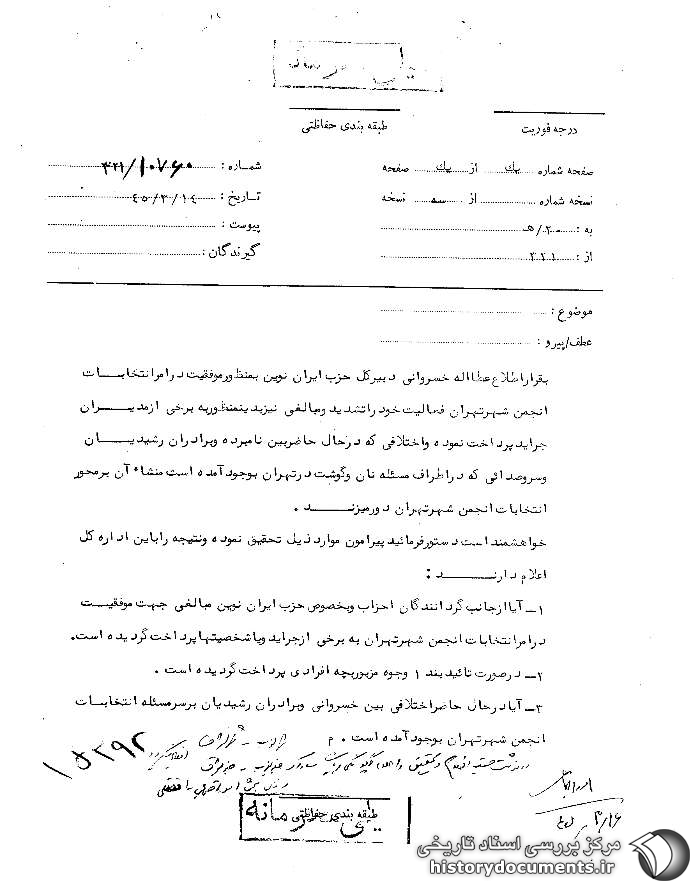 درجه فوریت
طبقه بندی حفاظتی
صفحه شماره یك از یك صفحه
شماره : ۳۲۱/۱۰۷۶۰
نسخه شماره از سه نسخه
تاریخ : ۴۵/۳/۱۴
به : ۲۰/ه
پیوست :
از : ۳۲۱
گیرندگان :
موضوع :
عطف/پیرو :
بقرار اطلاع عطااله خسروانی دبیرکل حزب ایران نوین بمنظور موفقیت در امر انتخابات
انجمن شهر تهران فعالیت خود را تشدید ومبالغی نیز بدینمنظور به برخی از مدیران
جراید پرداخت نموده واختلافی که در حال حاضر بین نامبرده وبرادران رشیدیان
وسروصدائی که در اطراف مسئله نان وگوشت در تهران بوجود آمده است منشاء آن بر محور
انتخابات انجمن شهر تهران دور میزند .
خواهشمند است دستور فرمائید پیرامون موارد ذیل تحقیق نموده ونتیجه را باین اداره کل
اعلام دارند :
۱ـ آیا از جانب گردانندگان احزاب وبخصوص حزب ایران نوین مبالغی جهت موفقیت
در امر انتخابات انجمن شهر تهران به برخی از جراید ویا شخصیتها پرداخت گردیده است.
۲ـ در صورت تائید بند ۱ وجوه مزبور بچه افرادی پرداخت گردیده است .
۳ـ آیا در حال حاضر اختلافی بین خسروانی وبرادران رشیدیان بر سر مسئله انتخابات
انجمن شهر تهران بوجود آمده است . م
۱۵۲۹۲
طبقه بندی حفاظتی
۳/۱۶
مرکز بررسی اسناد تاریخی
historydocuments.ir